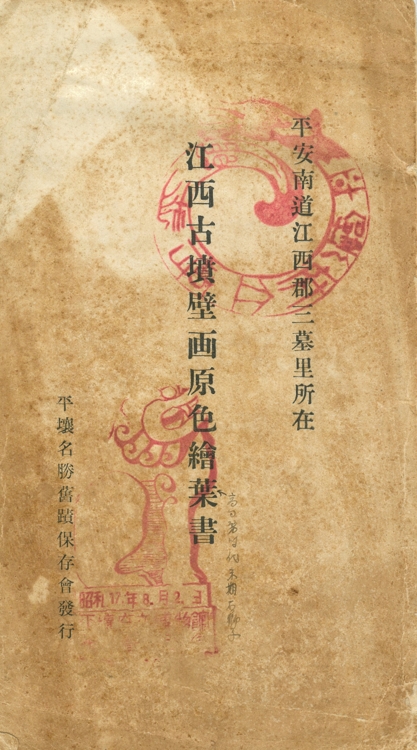 平安南道江西郡三墓里所在
江西古墳壁画原色繪葉書
平壤名勝舊蹟保存會發行
昭和17年8月2日